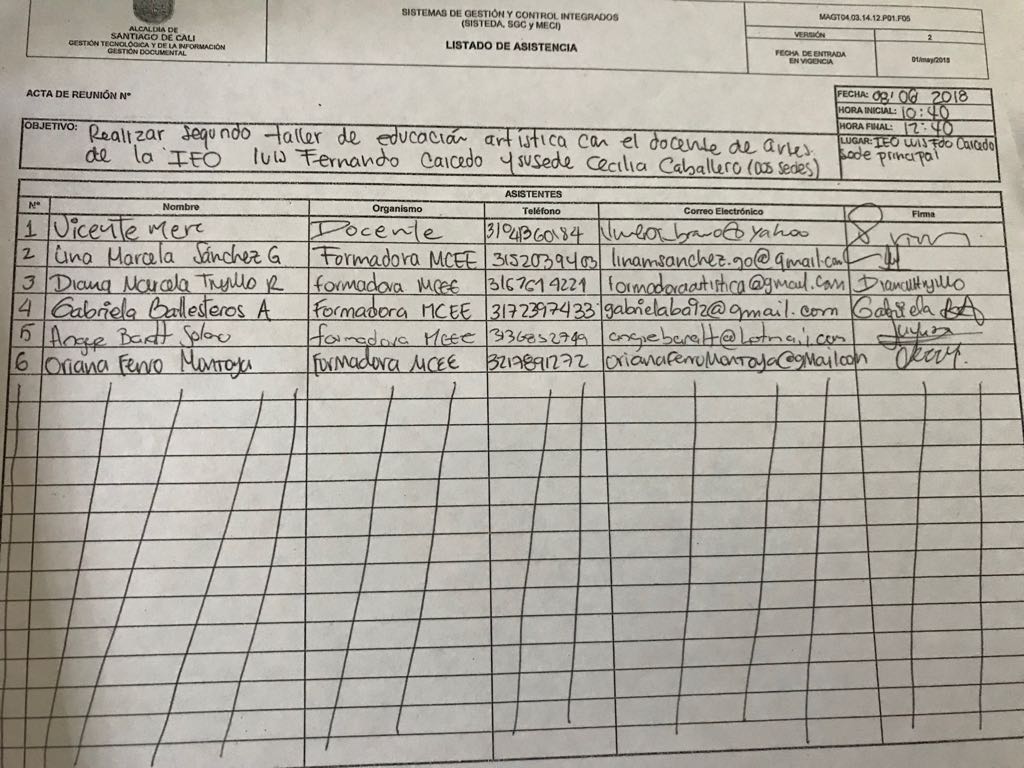 ALCALDIA DE
SANTIAGO DE CALI
GESTIÓN TECNOLÓGICA Y DE LA INFORMACIÓN
GESTIÓN DOCUMENTAL
SISTEMAS DE GESTIÓN Y CONTROL INTEGRADOS
(SISTEDA, SGC y MECI)
LISTADO DE ASISTENCIA
MAGT04.03.14.12.P01.F05
VERSIÓN 2
FECHA DE ENTRADA
EN VIGENCIA 01/may/2018
ACTA DE REUNIÓN N°
FECHA: 08/06 2018
HORA INICIAL: 10:40
HORA FINAL: 12:40
LUGAR: IEO Luis Fdo Caicedo
Sede principal
OBJETIVO: Realizar segundo taller de educación artística con el docente de artes
de la IEO Luis Fernando Caicedo y su sede Cecilia Caballero (dos sedes)
ASISTENTES
N° Nombre Organismo Teléfono Correo Electrónico Firma
1 Vicente Docente yahoo
2 Lina Marcela Sánchez G Formadora MCEE 3152039403 linamsanchez.go@gmail.com
3 Diana Marcela Trujillo R formadora MCEE 3167614221 formadoraartistica@gmail.com
4 Gabriela Ballesteros A Formadora MCEE 3172397433 gabrielaba92@gmail.com Gabriela BA
5 formadora MCEE angiebaralt@hotmail.com
6 Oriana Ferro Montoya Formadora MCEE 3217891272 orianaFerroMontoya@gmail.com